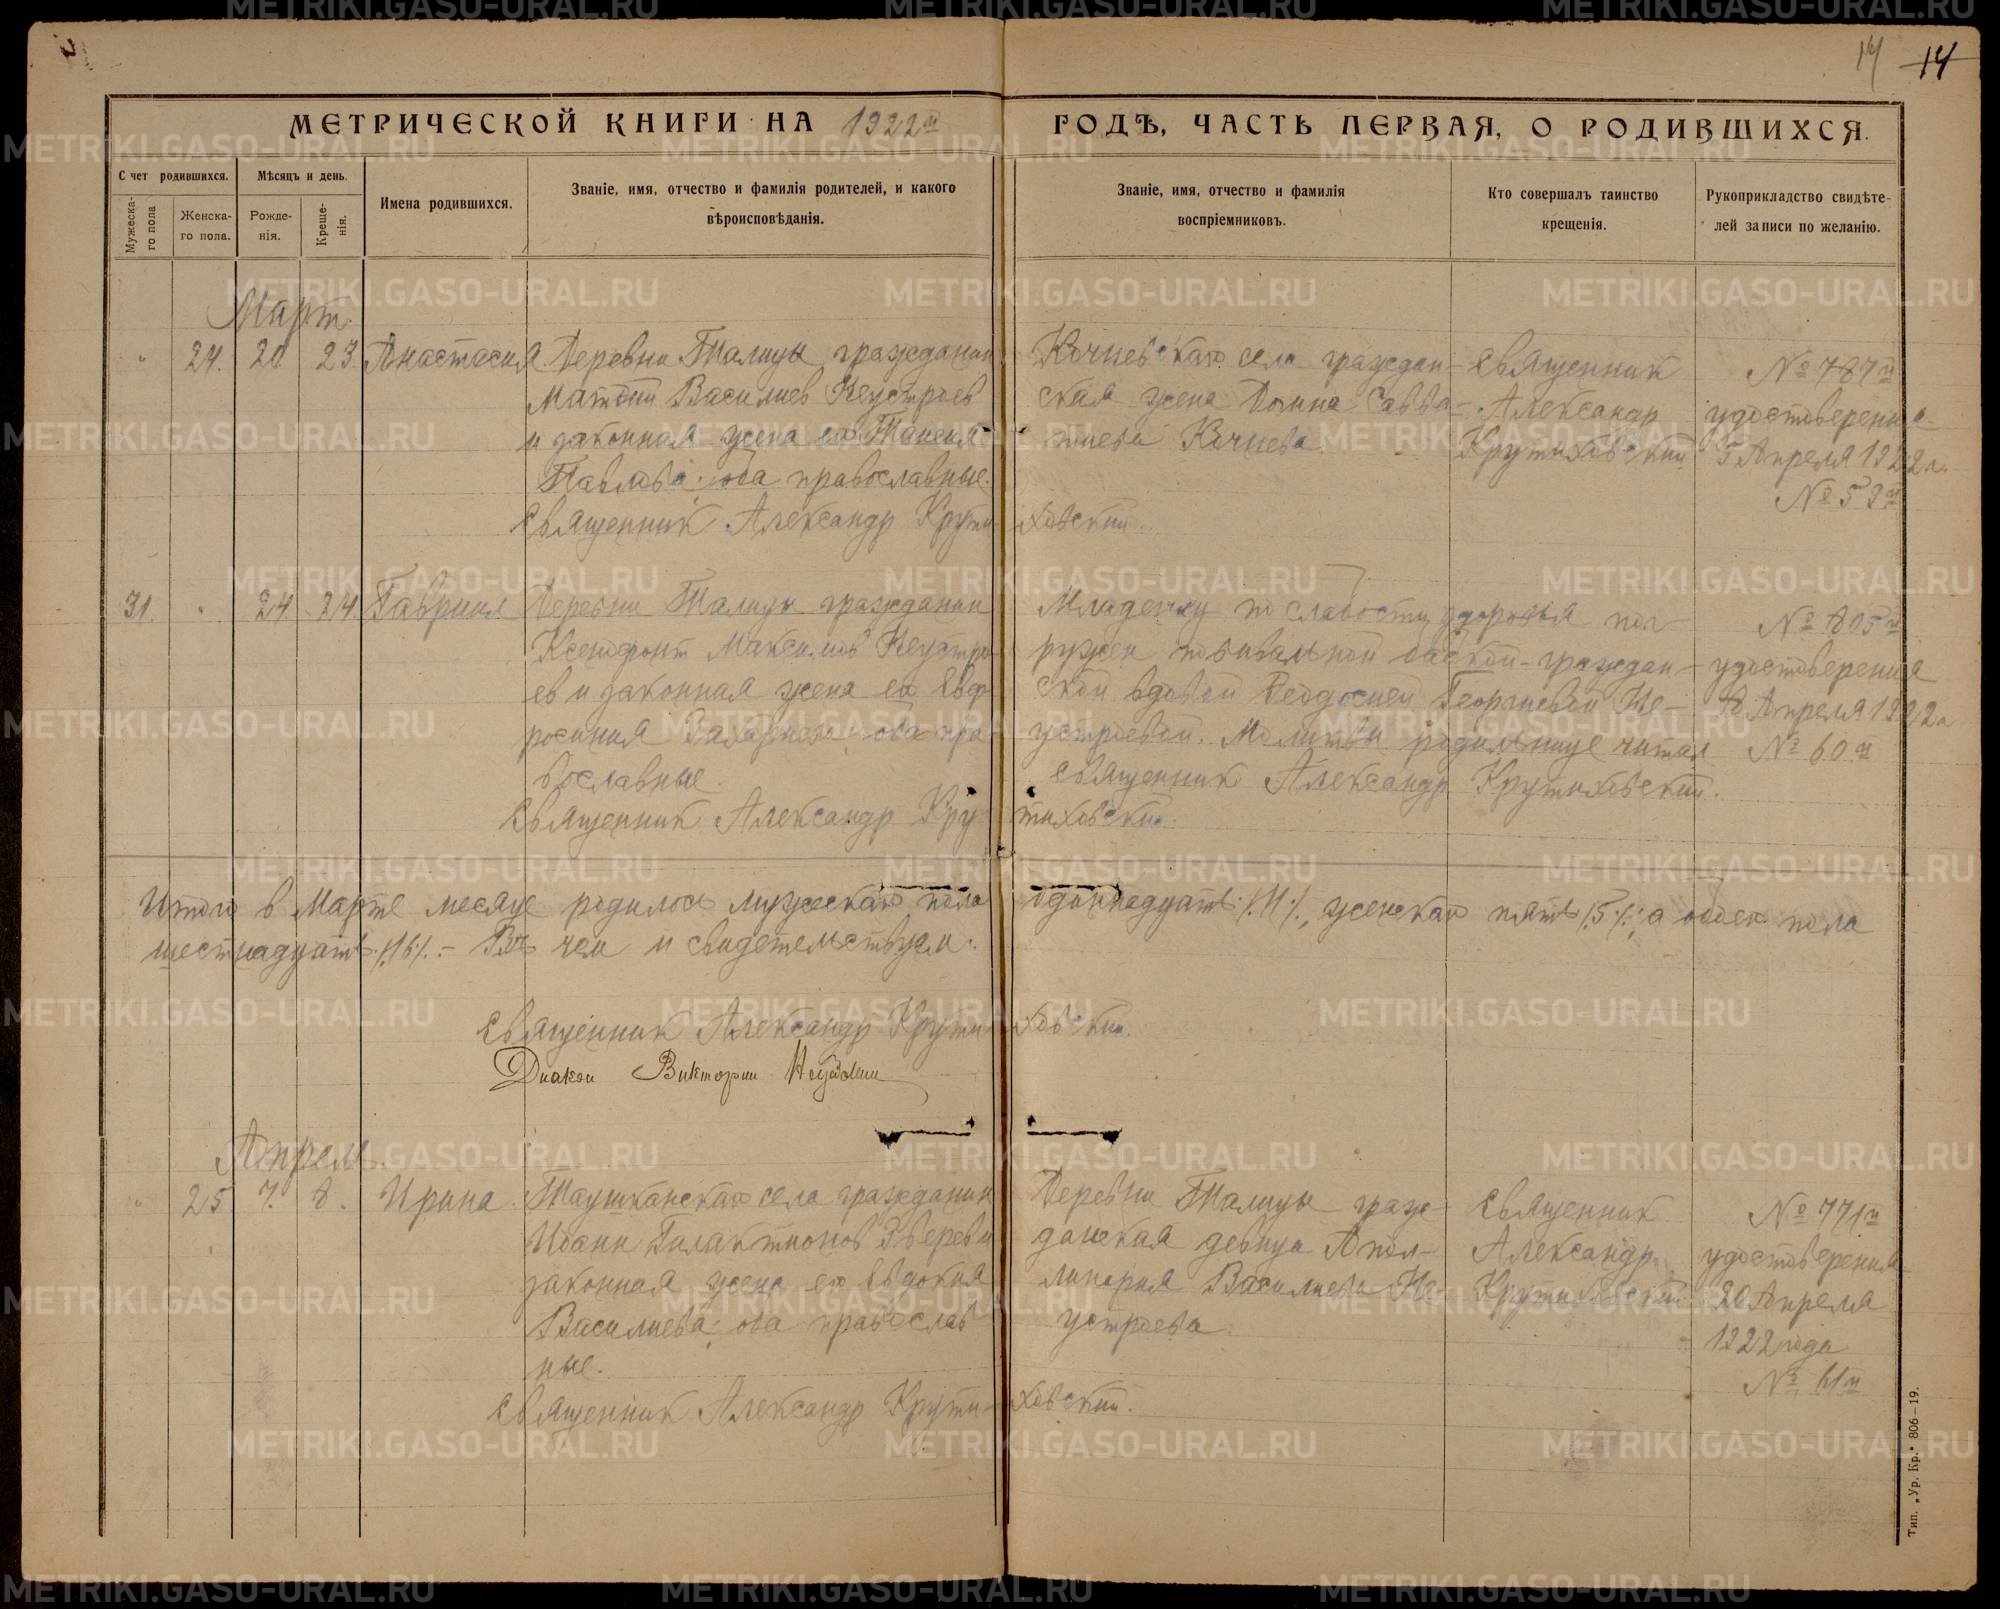 14 14
МЕТРИЧЕСКОЙ КНИГИ НА 1922й ГОДЪ, ЧАСТЬ ПЕРВАЯ, О РОДИВШИХСЯ.
Счет родившихся.
Мужеска-
го пола
Женска-
го пола.
Мѣсяцъ и день.
Рожде-
нія.
Креще-
нія.
Имена родившихся.
Званіе, имя, отчество и фамилія родителей, и какого
вѣроисповѣданія.
Званіе, имя, отчество и фамилія
воспріемниковъ.
Кто совершалъ таинство
крещенія.
Рукоприкладство свидѣте-
лей записи по желанію.
Март.
" 24. 20 23. Анастасия.
Деревни Талицы гражданин
Василиев Неустроев
и законная жена его
Павлова; оба православные.
Священник Александр Крути-
ховский.
Кочневскаго села граждан-
ская жена Савва-
тиева Кочнева.
Священник
Александр
Крутиховский
№ 787й
удостоверения
5 Апреля 1922 г.
№ 59й
31. " 24. 24. Гавриил
Деревни Талицы гражданин
Ксенофонт Максимов Неустро-
ев и законная жена его Евф-
росиния Захарова; оба пра-
вославные.
Священник Александр Кру-
тиховский.
Младенец по слабости здоровья пог-
ружен повивальной бабкой - граждан-
ской вдовой Феодосией Георгиевой Не-
устроевой. Молитвы родильнице читал
священник Александр Крутиховский.
№ 805й
удостоверения
8 Апреля 1922 г.
№ 60й
Итого в Марте месяце родилось мужескаго пола одиннадцать /.11./., женскаго пять /.5./.; а обоего пола
шестнадцать /.16./. - В чем и свидетельствуем:
Священник Александр Крутиховский.
Диакон Викторин
Апрель.
" 25 7. 8. Ирина.
Таушканскаго села гражданин
Иоанн Галактионов Зверев и
законная жена его Евдокия
Василиева; оба православ-
ные.
Священник Александр Крути-
ховский.
Деревни Талицы граж-
данская девица Апол-
линария Василиева Не-
устроева
Священник
Александр
Крутиховский
№ 771й
удостоверения
20 Апреля
1922 года
№ 61й
Тип. „Ур. Кр." 806—19.
METRIKI.GASO-URAL.RU